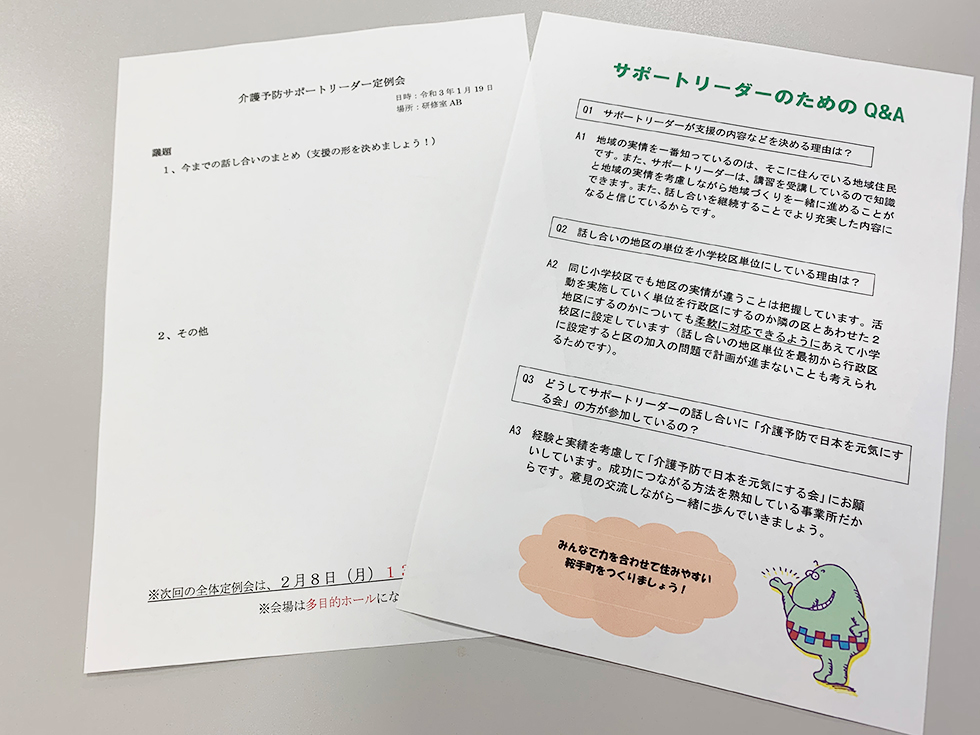 介護予防サポートリーダー定例会
日時：令和3年1月19日
場所：研修室AB
議題
１、今までの話し合いのまとめ（支援の形を決めましょう！）
２、その他
※次回の全体定例会は、２月８日（月）１３
※会場は多目的ホールにな
サポートリーダーのためのQ&A
Q1 サポートリーダーが支援の内容などを決める理由は？
A1 地域の実情を一番知っているのは、そこに住んでいる地域住民
です。また、サポートリーダーは、講習を受講しているので知識
と地域の実情を考慮しながら地域づくりを一緒に進めることが
できます。また、話し合いを継続することでより充実した内容に
なると信じているからです。
Q2 話し合いの地区の単位を小学校区単位にしている理由は？
A2 同じ小学校区でも地区の実情が違うことは把握しています。活
動を実施していく単位を行政区にするのか隣の区とあわせた２
地区にするのかについても柔軟に対応できるようにあえて小学
校区に設定しています（話し合いの地区単位を最初から行政区
に設定すると区の加入の問題で計画が進まないことも考えられ
るためです）。
Q3 どうしてサポートリーダーの話し合いに「介護予防で日本を元気にす
る会」の方が参加しているの？
A3 経験と実績を考慮して「介護予防で日本を元気にする会」にお願
いしています。成功につながる方法を熟知している事業所だか
らです。意見の交流しながら一緒に歩んでいきましょう。
みんなで力を合わせて住みやすい
鞍手町をつくりましょう！